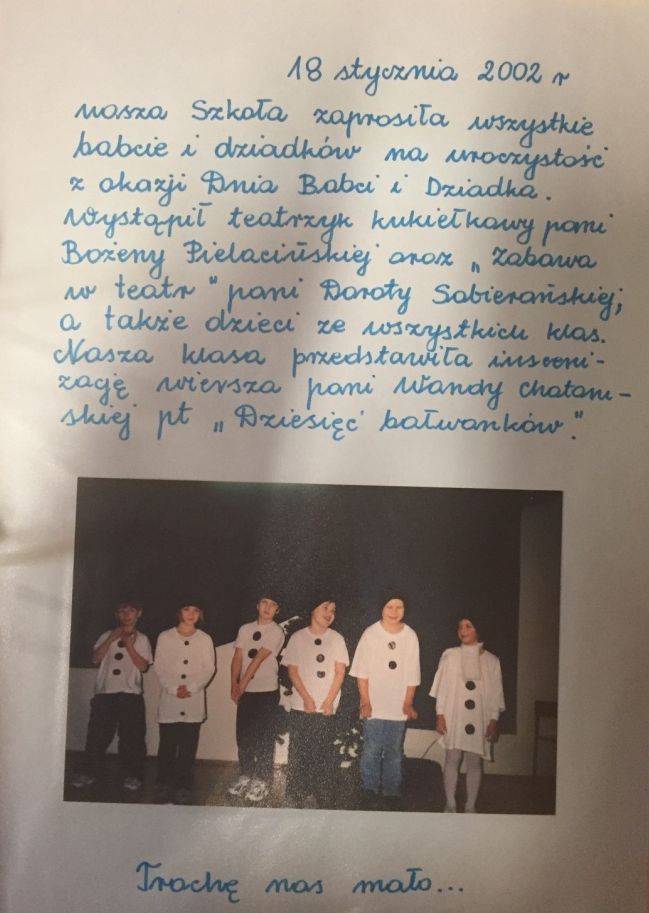 18 stycznia 2002 r
nasza Szkoła zaprosiła wszystkie
babcie i dziadków na uroczystość
z okazji Dnia Babci i Dziadka.
Wystąpił teatrzyk kukiełkowy pani
Bożeny Pielacińskiej oraz „Zabawa
w teatr" pani Doroty Sobierańskiej,
a także dzieci ze wszystkich klas.
Nasza klasa przedstawiła insceni-
zację wiersza pani Wandy Chotom-
skiej pt „Dziesięć bałwanków."
Trochę nas mało...